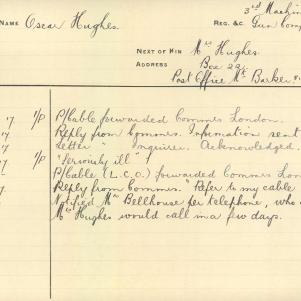 3rd Machin
NAME Oscar Hughes. REG. &C. Gun Comp
NEXT OF KIN Mrs Hughes.
ADDRESS Box 22,
Post Office Mt Barker
17 1/P P/Cable forwarded Commrs London.
17 Reply from Lymore. Information sent
Letter " inquirer. Acknowledged.
1/P "Seriously ill"
P/Cable (L.C.O.) forwarded Commrs Lon
Reply from Commrs. "Refer to my cable
Notified Mrs Bellhouse per telephone, who
Mrs Hughes would call in a few days.